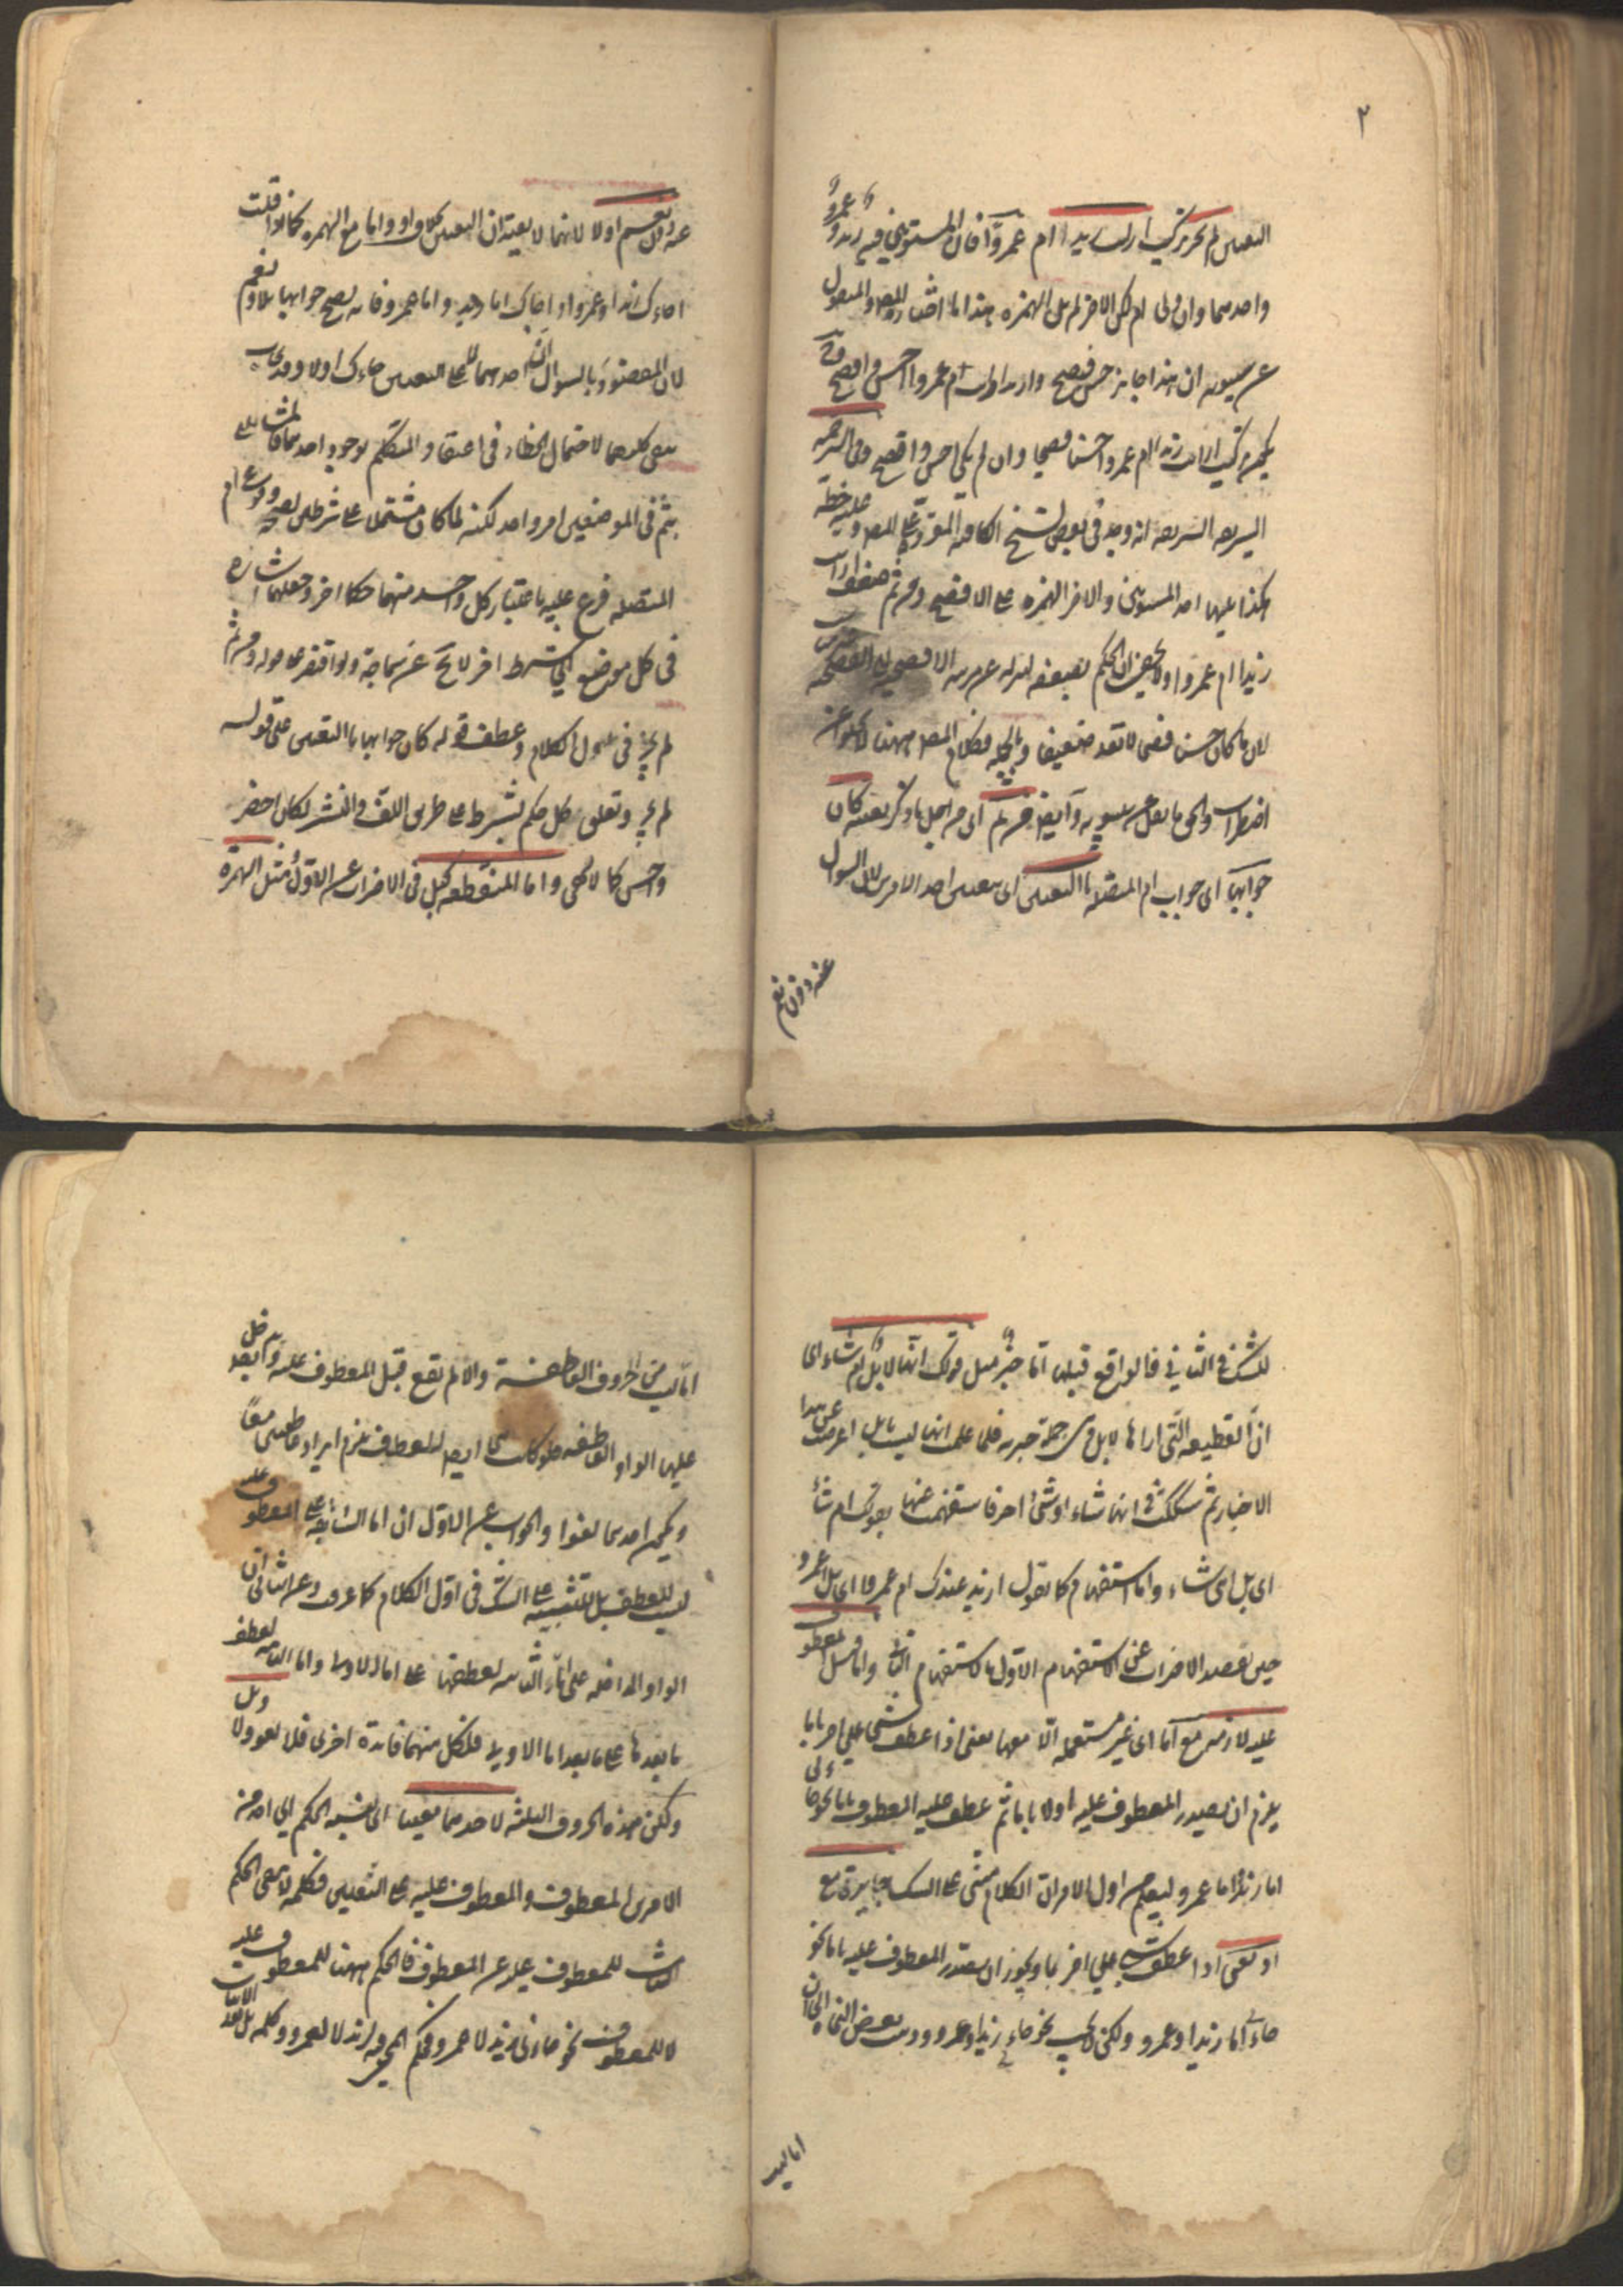 ٢
التعيين لم يجز تركيب ارايت زيدا ام عمروا فان المستويين فيه زيد و عمرو
واحدهما وان ولى ام لكن الاخر لم يل الهمزة هذا ما اختاره المصـ والمنقول
عن سيبويه ان هذا جايز حسن فصيح وازيدا رايت ام عمروا احسن وافصح
تركيب ارايت زيدا ام عمروا حسنا فصيحا وان لم يكن احسن وافصح وفى الترجمة
الشريفه الشريفه انه وجد فى بعض نسخ الكافيه المقروة على المصـ وعليه خطه
هكذا يليها احد المستويين والاخر الهمزة على الافصح ومن ثم ضعف ارايت
زيدا ام عمروا ولا يخفى ان الحكم بضعفه
لان ما كان حسنا فصيحا لا يعد ضعيفا وبالجملة فكلام المصـ ههنا لا يخلو عن
اضطراب والحق ما نقل عن سيبويه وايضا من ثم اى من اجل ما ذكر بعينه كان
جوابها اى جواب ام المتصلة بالتعيين اى بتعيين احد الامرين لان السوال
عنه دون نعم
عنه دون نعم او لا لانهما لا يفيدان التعيين بخلاف او واما مع الهمزة كما اذا قلت
اجاءك زيد او عمرو او اجاءك اما زيد واما عمرو فانه يصح جوابهما بلا او نعم
لان المقصود بالسوال ان احدهما لا على التعيين جاءك اولا وقد يجاب
بنفى كليهما لاحتمال الخطاء فى اعتقاد المتكلم بوجود احدهما فالمشار اليه
بثم فى الموضعين امر واحد لكنه لما كان مشتملا على شرطين لصحة وقوع ام
المتصلة فرع عليه باعتبار كل واحد منهما حكما اخر وجعلهما اشارة
فى كل موضع الى شرط اخر لا يخلو عن سماجة ولو اقتصر على قوله ومن ثم
لم يجز فى اول الكلام وعطف قوله كان جوابها بالتعيين على قوله
لم يجز وتعلق كل حكم بشرط على طريق اللف والنشر لكان اخصر
واحسن كما لا يخفى واما المنقطعة كبل فى الاضراب عن الاول ومثل الهمزة
للشك فى الثانى فالواقع قبلها اما خبر مثل قولك انها لابل ام شاء اى
ان القطيعة التى اراها لابل وهى جملة خبرية فلما علمت انها ليست بابل اعرضت عن هذا
الاخبار ثم شككت فى انها شاء او شئ اخر فاستفهمت عنها بقولك ام شاء
اى بل اهى شاء واما استفهام كما تقول ازيد عندك ام عمرو اى بل اعمرو
حين تقصد الاضراب عن الاستفهام الاول باستفهام الثانى واما قبل المعطوف
عليه لازمة مع اما اى غير مستعملة الا معها يعنى اذا عطف شئ على اخر باما
يلزم ان يصدر المعطوف عليه اولا باما ثم عطف عليه المعطوف باما نحو جاءنى
اما زيد واما عمرو ليعلم من اول الامر ان الكلام مبنى على الشك جايزة مع
او يعنى اذا عطف شئ على اخر باو يجوز ان يصدر المعطوف عليه باما نحو
جاءنى اما زيد او عمرو ولكن لا يجب نحو جاءنى زيد او عمرو وذهب بعض النحاة الى ان
اما ليست
اما ليست من الحروف العاطفة والا لم تقع قبل المعطوف عليه وايضا يدخل
عليها الواو العاطفة فلو كانت هى ايضا للعطف يلزم ايراد عاطفين معا
ويكون احدهما لغوا والجواب عن الاول ان اما السابقة على المعطوف عليه
ليست للعطف بل للتنبيه على الشك فى اول الكلام كما عرفت وعن الثانى ان
الواو الداخلة على اما الثانية لعطفها على اما الاولى واما الثانية لعطف
ما بعدها على ما بعد اما الاولى فلكل منهما فائدة اخرى فلا لغو ولا وبل
ولكن هذه الحروف الثلثة لاحدهما معينا اى لنسبة الحكم الى احد من
الامرين المعطوف والمعطوف عليه على التعيين فكلمة لا لنفى الحكم
الثابت للمعطوف عليه عن المعطوف فالحكم ههنا للمعطوف عليه
لا للمعطوف نحو جاءنى زيد لا عمرو فحكم المجئ لزيد لا لعمرو وكلمة بل بعد الاثبات